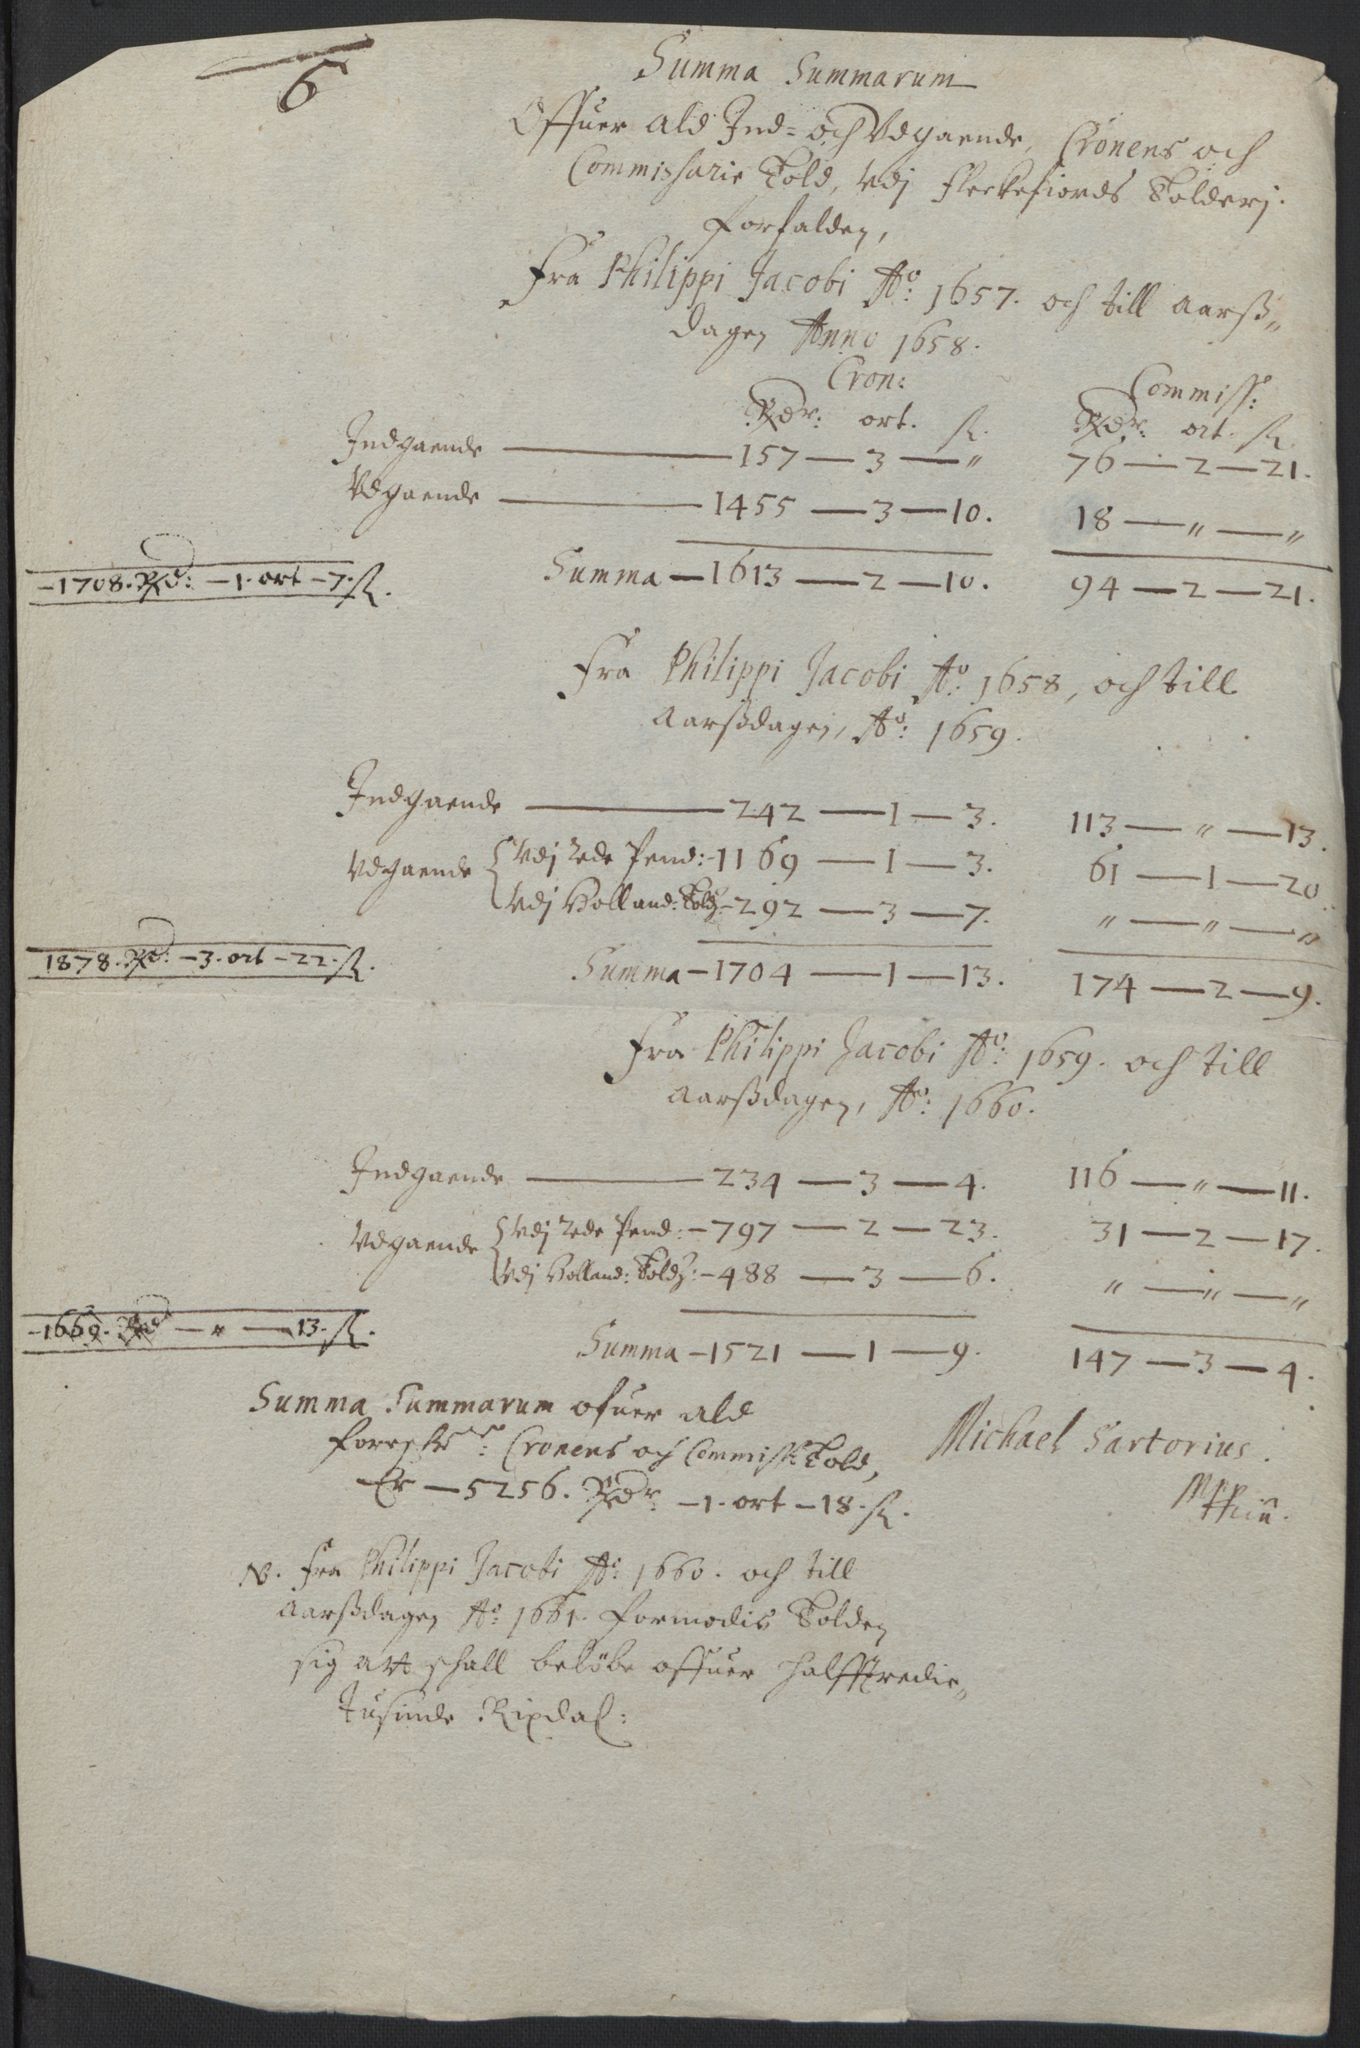 6
Summa Summarum
Offuer ald Ind= och Vdgaende, Cronens och
Commissarie Told, Vdj Fleckefiords Tolderj
forfalden,
Fra Philippi Jacobi Ao: 1657. och till Aarss„
dagen Anno 1658.
Cron: Commiss:
Rdr: ort. ß. Rdr: ort. ß
Indgaende — 157 — 3 — „ 76 — 2 — 21.
Vdgaende — 1455 — 3 — 10. 18 — „ — „
Summa — 1613 — 2 — 10. 94 — 2 — 21.
— 1708. Rd: — 1. ort — 7. ß.
Fra Philippi Jacobi Ao: 1658, och till
Aarssdagen, Ao: 1659.
Indgaende — 242 — 1 — 3. 113 — „ — 13.
Vdgaende { Vdj rede Pend: — 1169 — 1 — 3. 61 — 1 — 20.
Vdj Holland: Toldz: — 292 — 3 — 7. „ — „ — „
Summa — 1704 — 1 — 13. 174 — 2 — 9.
1878. Rd: — 3. ort — 22. ß.
Fra Philippi Jacobi Ao: 1659. och till
Aarssdagen, Ao: 1660.
Indgaende — 234 — 3 — 4. 116 — „ — 11.
Vdgaende { Vdj rede Pend: — 797 — 2 — 23. 31 — 2 — 17.
Vdj Holland: Toldz: — 488 — 3 — 6. „ — „ — „
Summa — 1521 — 1 — 9. 147 — 3 — 4.
— 1669. Rd — „ — 13. ß.
Summa Summarum ofuer ald
Cronens och Commiss: Told,
Er — 5256. Rdr — 1. ort — 18. ß.
Michael Sartorius.
N. Fra Philippi Jacobi Ao: 1660. och till
Aarssdagen Ao: 1661. formodis Tolden
sig att schall belöbe offuer halfftredie„
Tusinde Rixdal: